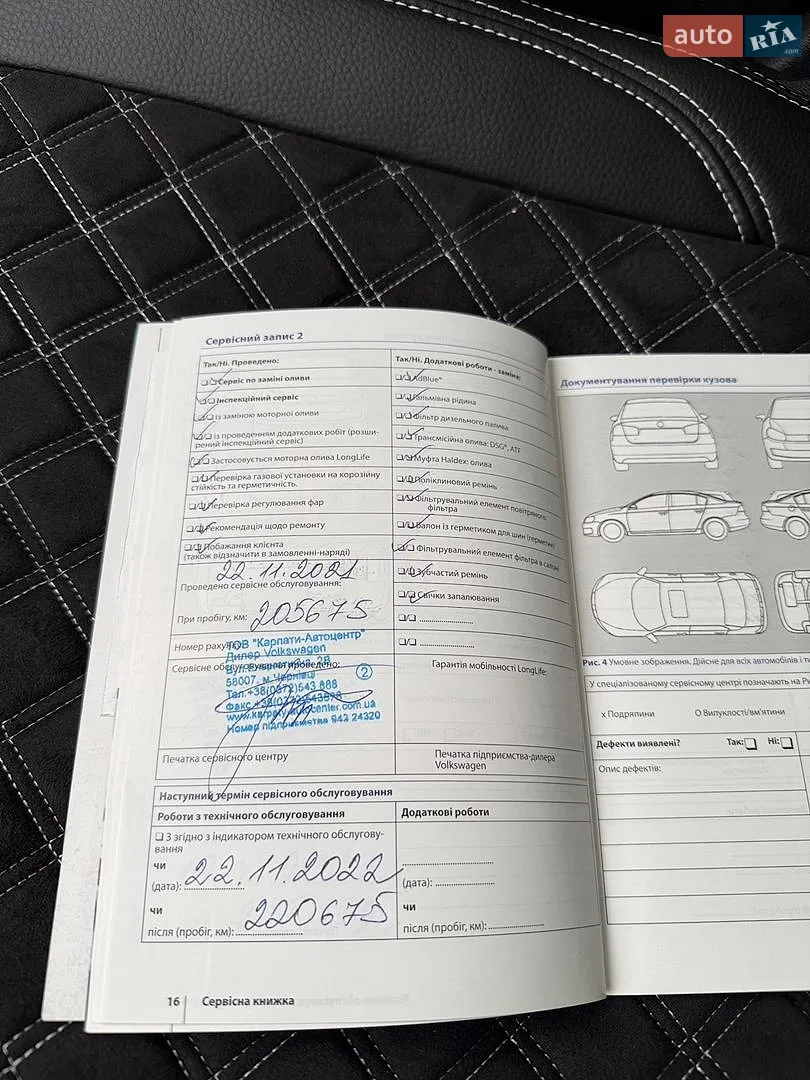 auto RIA .com
Сервісний запис 2
Так/Ні. Проведено:
Сервіс по заміні оливи
Інспекційний сервіс
із заміною моторної оливи
із проведенням додаткових робіт (розши-
рений інспекційний сервіс)
Застосовується моторна олива LongLife
Перевірка газової установки на корозійну
стійкість та герметичність.
Перевірка регулювання фар
Рекомендація щодо ремонту
Побажання клієнта
(також відзначити в замовленні-наряді)
22.11.2021
Проведено сервісне обслуговування:
При пробігу, км: 205675
Номер рахунку
ТОВ "Карпати-Автоцентр"
Дилер Volkswagen
Сервісне обслуговування проведено:
58007, м. Чернівці
Тел. +38(0372)543 888
Факс +38(0372)543878
www.karpaty-autocenter.com.ua
Номер підприємства 943 24320
2
Печатка сервісного центру
Так/Ні. Додаткові роботи - заміна:
AdBlue®
Гальмівна рідина
Фільтр дизельного палива
Трансмісійна олива: DSG®, ATF
Муфта Haldex: олива
Поліклиновий ремінь
Фільтрувальний елемент повітряного
фільтра
Балон із герметиком для шин (герметик)
Фільтрувальний елемент фільтра в салоні
Зубчастий ремінь
Свічки запалювання
Гарантія мобільності LongLife:
Печатка підприємства-дилера
Volkswagen
Наступний термін сервісного обслуговування
Роботи з технічного обслуговування
З згідно з індикатором технічного обслугову-
вання
чи
(дата): 22.11.2022
чи
після (пробіг, км): 220675
Додаткові роботи
(дата):
чи
після (пробіг, км):
16 Сервісна книжка
Документування перевірки кузова
Рис. 4 Умовне зображення. Дійсне для всіх автомобілів і
У спеціалізованому сервісному центрі позначають на
x Подряпини O Випуклості/вм'ятини
Дефекти виявлені? Так: Ні:
Опис дефектів: